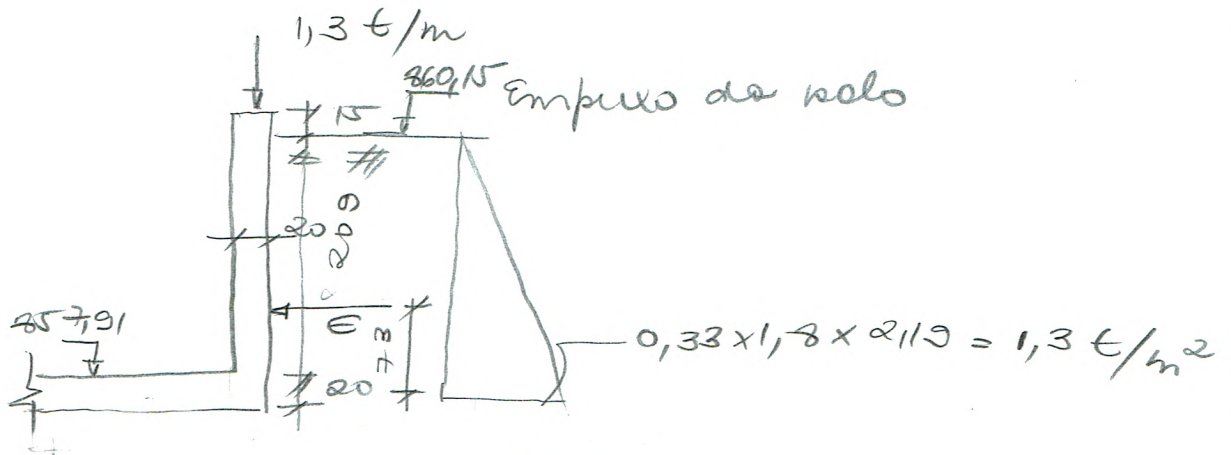 1,3 t/m
860,15
Empuxo do solo
15
20
209
857,91
E
73
20
0,33 x 1,8 x 2,19 = 1,3 t/m²